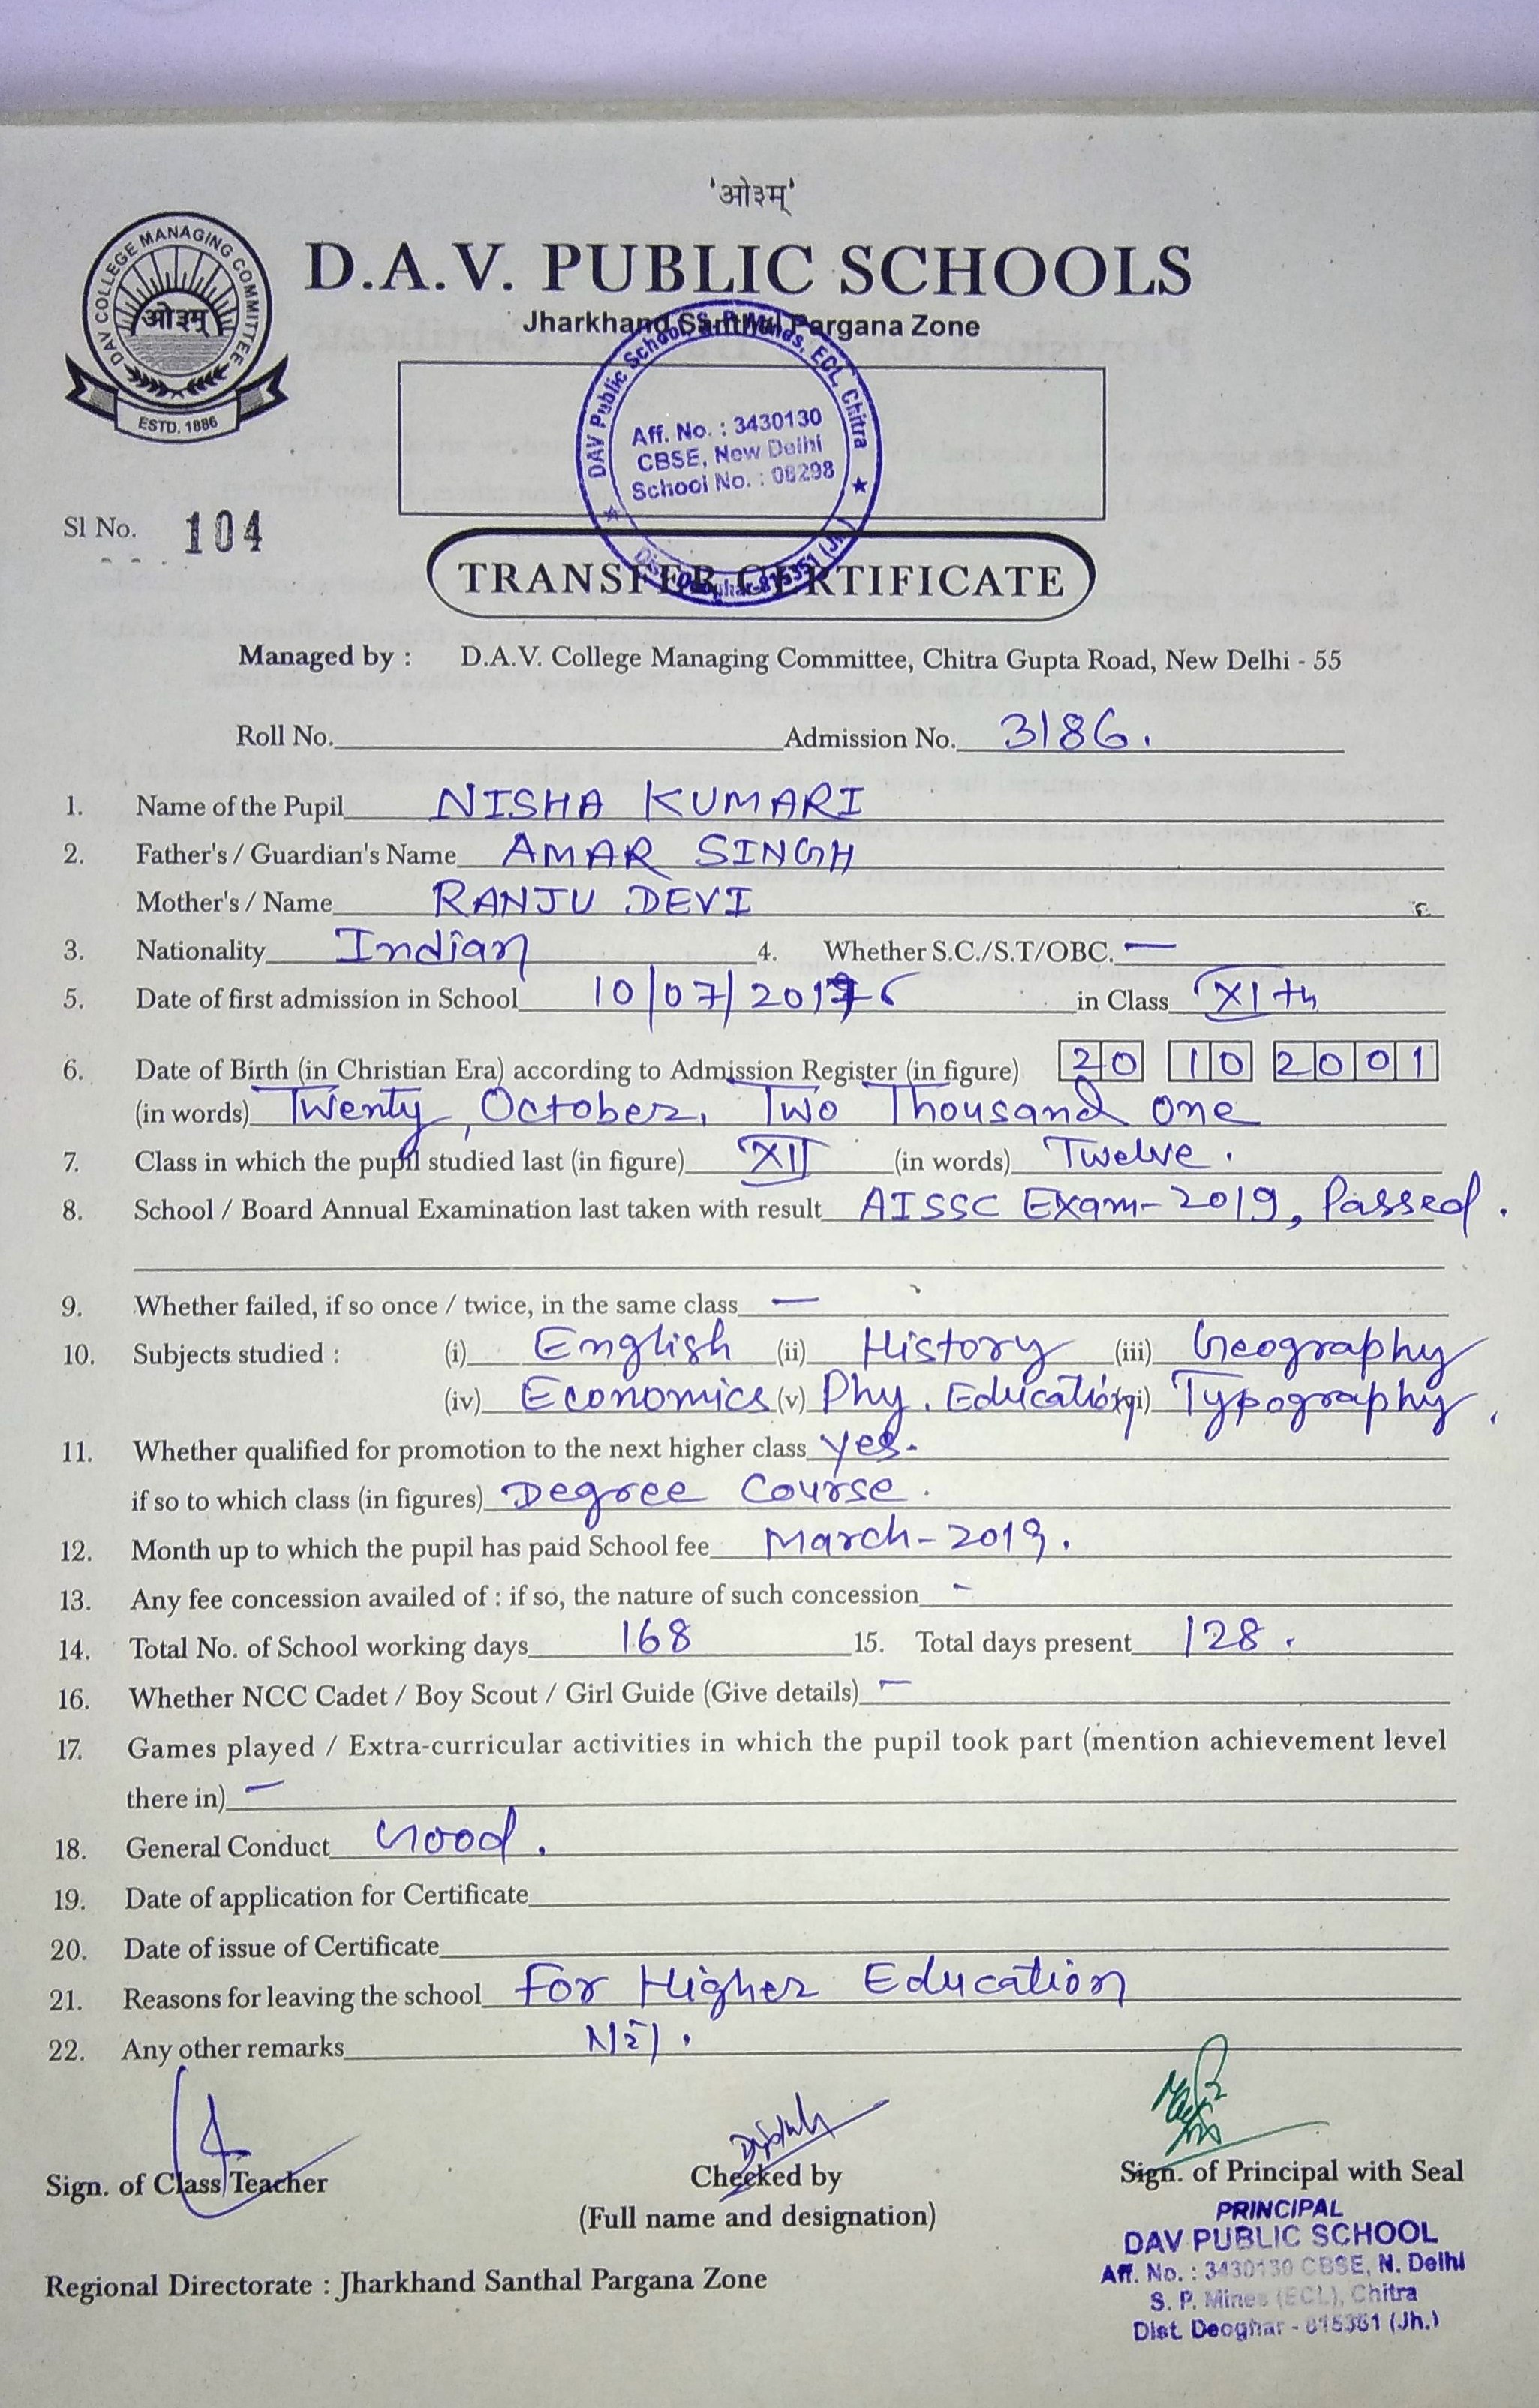 'ओ३म्'
DAV COLLEGE MANAGING COMMITTEE
ओ३म्
ESTD. 1886
D.A.V. PUBLIC SCHOOLS
Jharkhand Santhal Pargana Zone
DAV Public School, S. P. Mines, ECL, Chitra
Aff. No. : 3430130
CBSE, New Delhi
School No. : 08298
Dist. Deoghar-815351 (Jh.)
Sl No. 104
TRANSFER CERTIFICATE
Managed by : D.A.V. College Managing Committee, Chitra Gupta Road, New Delhi - 55
Roll No. Admission No. 3186.
1. Name of the Pupil NISHA KUMARI
2. Father's / Guardian's Name AMAR SINGH
Mother's / Name RANJU DEVI
3. Nationality Indian 4. Whether S.C./S.T/OBC. —
5. Date of first admission in School 10/07/201 in Class XIth
6. Date of Birth (in Christian Era) according to Admission Register (in figure) 20 10 2001
(in words) Twenty, October, Two Thousand One
7. Class in which the pupil studied last (in figure) XII (in words) Twelve.
8. School / Board Annual Examination last taken with result AISSC Exam-2019, Passed.
9. Whether failed, if so once / twice, in the same class —
10. Subjects studied : (i) English (ii) History (iii) Geography
(iv) Economics (v) Phy. Education (vi) Typography,
11. Whether qualified for promotion to the next higher class yes.
if so to which class (in figures) Degree Course.
12. Month up to which the pupil has paid School fee March-2019.
13. Any fee concession availed of : if so, the nature of such concession -
14. Total No. of School working days 168 15. Total days present 128.
16. Whether NCC Cadet / Boy Scout / Girl Guide (Give details) —
17. Games played / Extra-curricular activities in which the pupil took part (mention achievement level
there in) —
18. General Conduct Good.
19. Date of application for Certificate
20. Date of issue of Certificate
21. Reasons for leaving the school For Higher Education
22. Any other remarks Nil.
Sign. of Class Teacher Checked by Sign. of Principal with Seal
(Full name and designation)
PRINCIPAL
DAV PUBLIC SCHOOL
Aff. No. : 3430130 CBSE, N. Delhi
S. P. Mines (ECL), Chitra
Dist. Deoghar - 815351 (Jh.)
Regional Directorate : Jharkhand Santhal Pargana Zone